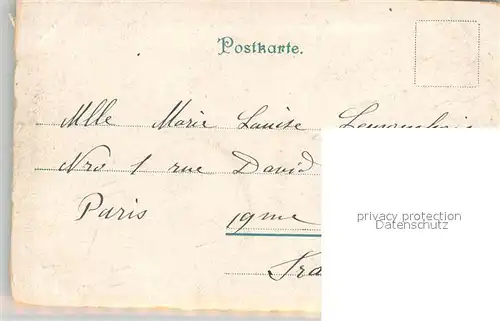 Postkarte.
Mlle Marie Louise
Nro 1 rue David
Paris 19me
privacy protection
Datenschutz